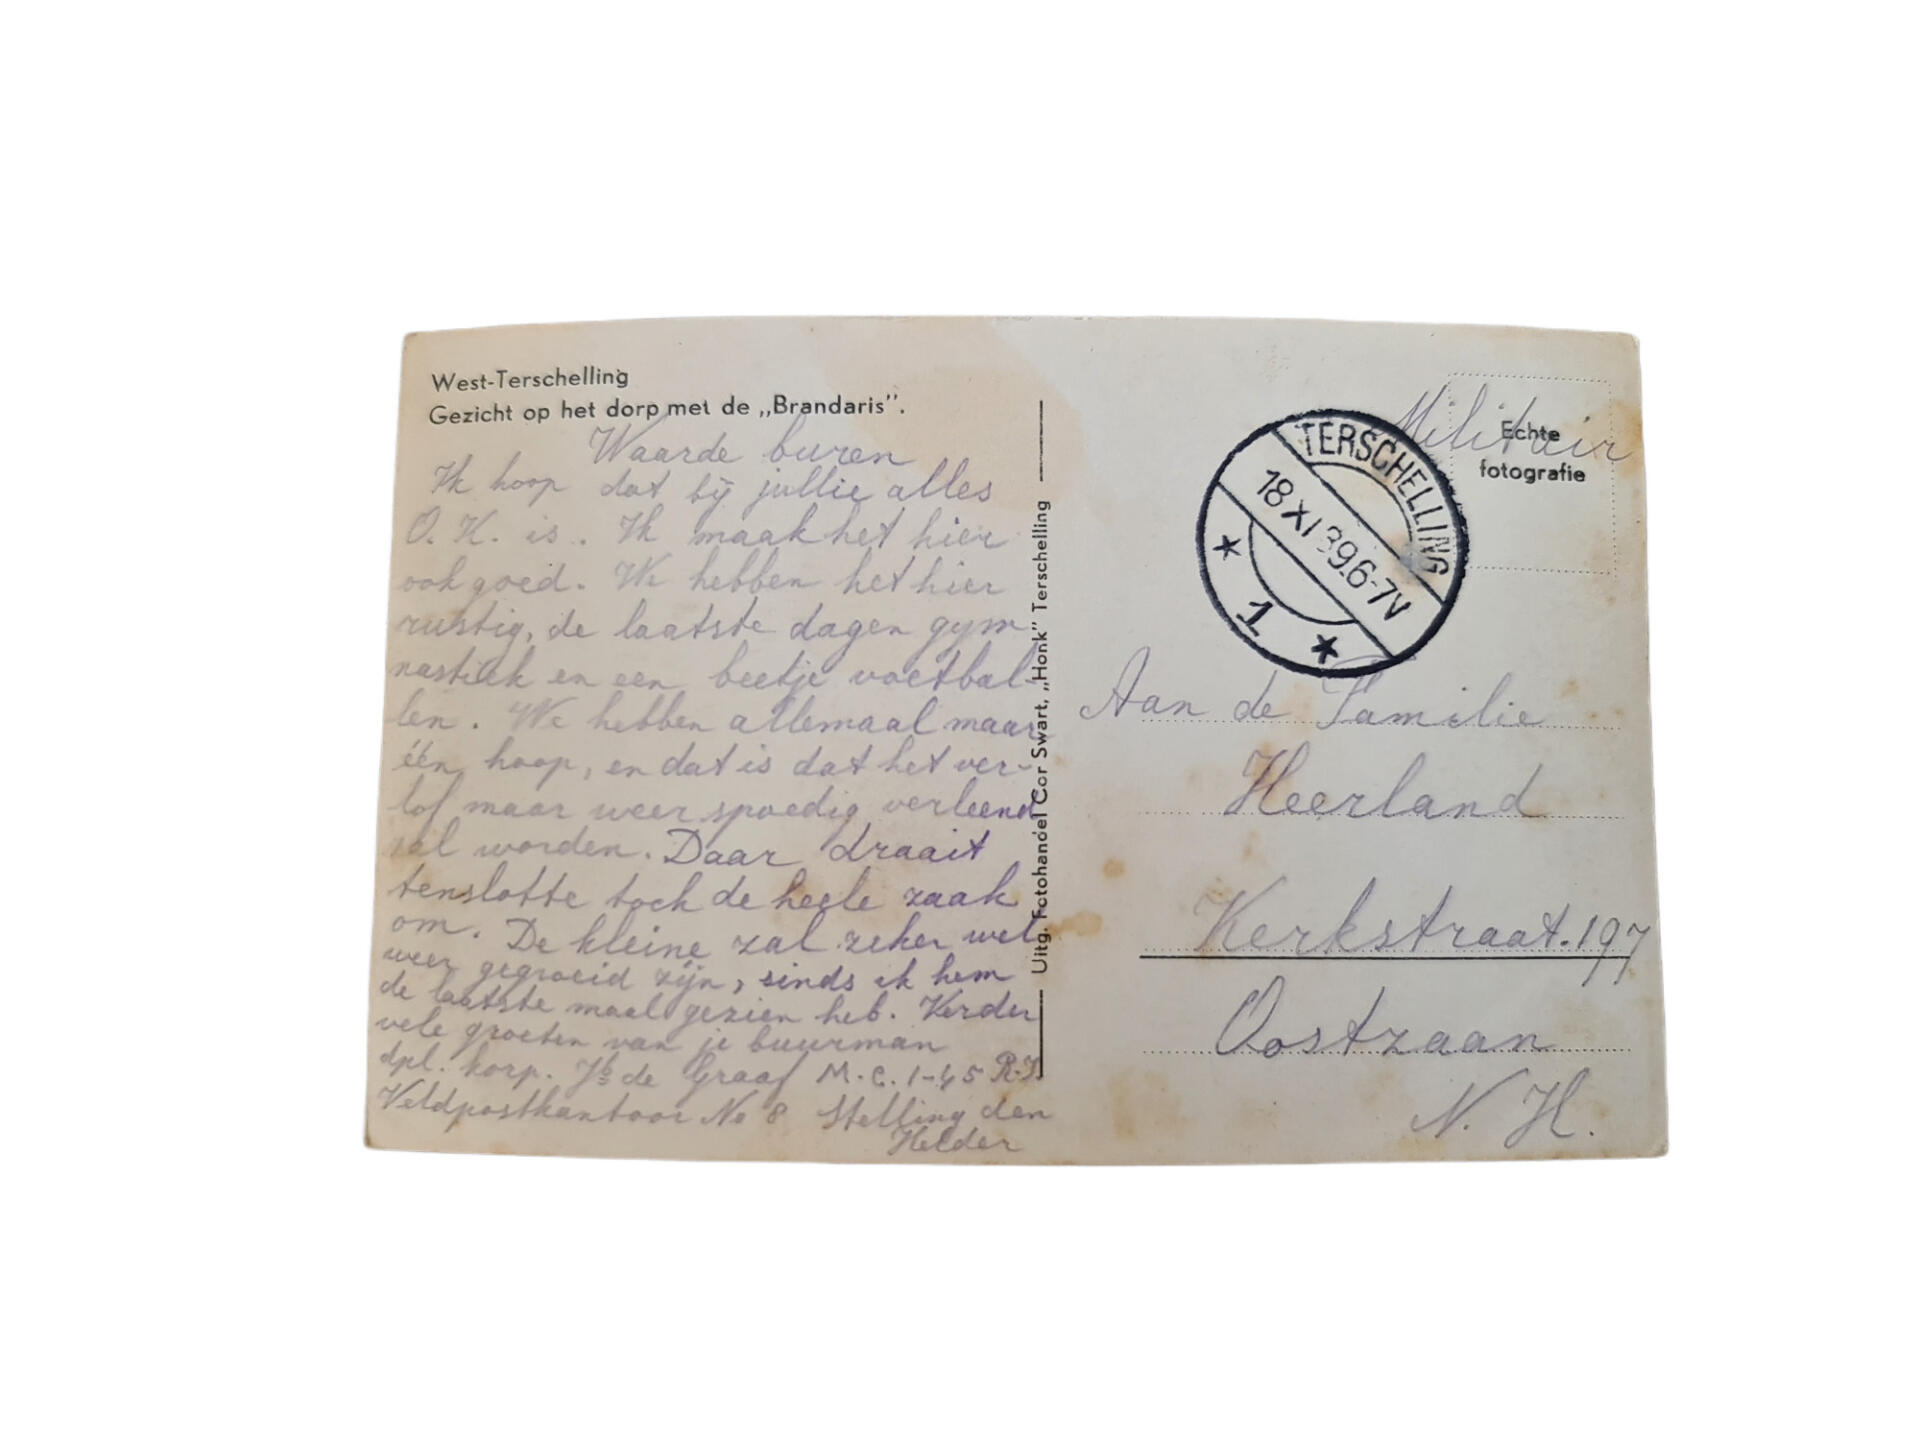 West-Terschelling
Gezicht op het dorp met de „Brandaris".
Waarde buren
Ik hoop dat bij jullie alles
O.K. is. Ik maak het hier
ook goed. We hebben het hier
rustig, de laatste dagen gym
nastiek en een beetje voetbal-
len. We hebben allemaal maar
één hoop, en dat is dat het ver-
lof maar weer spoedig verleend
zal worden. Daar draait
tenslotte toch de heele zaak
om. De kleine zal zeker wel
weer gegroeid zijn, sinds ik hem
de laatste maal gezien heb. Verder
vele groeten van je buurman
dpl. korp. Jb de Graaf M.C. 1-45 R.I.
Veldpostkantoor No 8 Stelling den
Helder
Uitg. Fotohandel Cor Swart, „Honk" Terschelling
Militair
Echte
fotografie
TERSCHELLING
18 XI 39.6-7V
1
Aan de Familie
Heerland
Kerkstraat. 197
Oostzaan
N.H.